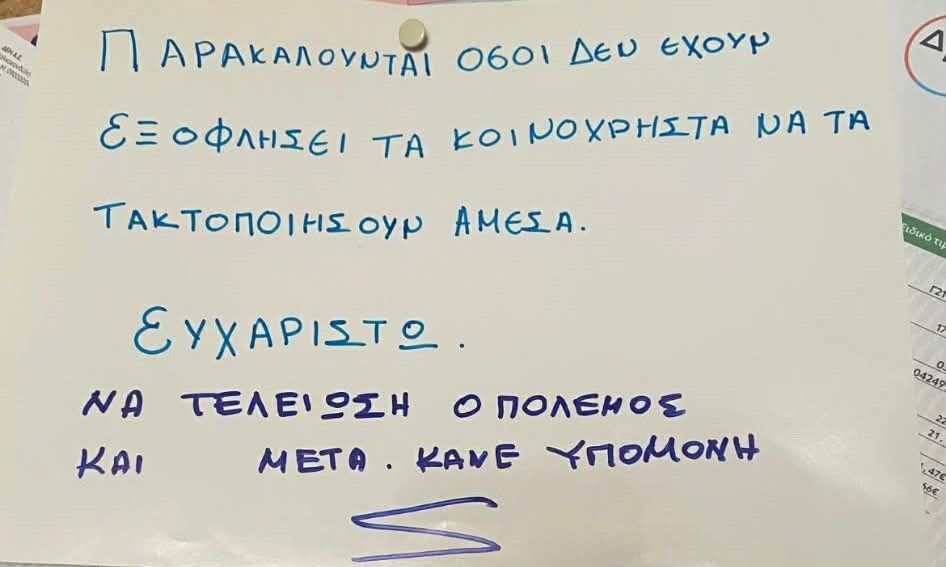 ΠΑΡΑΚΑΛΟΥΝΤΑΙ ΟΣΟΙ ΔΕΝ ΕΧΟΥΝ
ΕΞΟΦΛΗΣΕΙ ΤΑ ΚΟΙΝΟΧΡΗΣΤΑ ΝΑ ΤΑ
ΤΑΚΤΟΠΟΙΗΣΟΥΝ ΑΜΕΣΑ.
ΕΥΧΑΡΙΣΤΩ.
ΝΑ ΤΕΛΕΙΩΣΗ Ο ΠΟΛΕΜΟΣ
ΚΑΙ ΜΕΤΑ. ΚΑΝΕ ΥΠΟΜΟΝΗ
ειδικό
04249